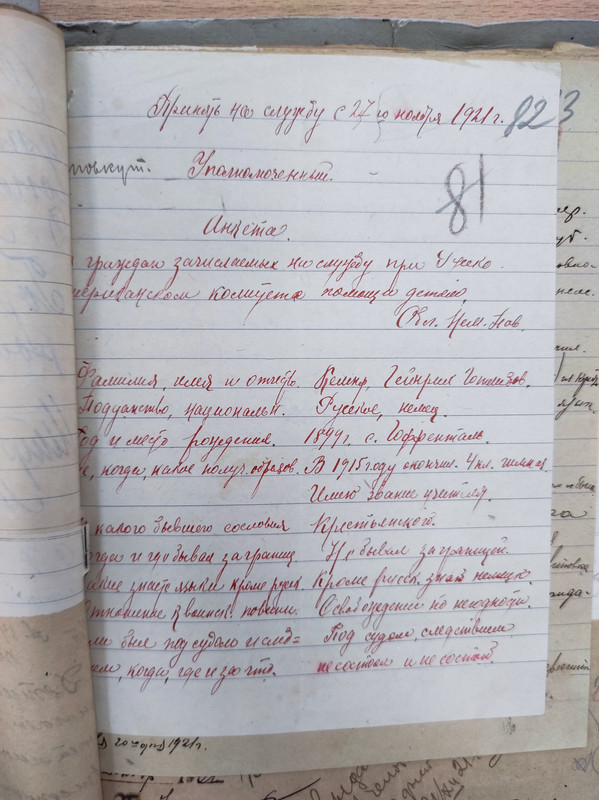 Принять на службу с 27 го ноября 1921 г.
82
3
Уполномоченный.
81
Анкета.
граждан зачисляемых на службу при Русско
мериканском комитете помощи детям,
Обл. Нем. Пов.
Фамилия, имя и отчеств. Гейнрих
Подданство, национальн. Русское, немец.
од и место рождения. 1899 г. с. Гоффенталь.
е, когда, какое получ. образов. В 1915 году окончил. 4 кл. гимназ.
Имею звание учителя.
какого бывшего сословия Крестьянского.
огда и где бывал за границ. Не бывал за границей.
акие знаете языки кроме русск. Кроме русск. знаю немецк.
тношение к воинск. повинн. Освобожден по негодности.
ли был под судом и след=
Под судом, следствием
ем, когда, где и за что. не состоял и не состою.
1921 г.